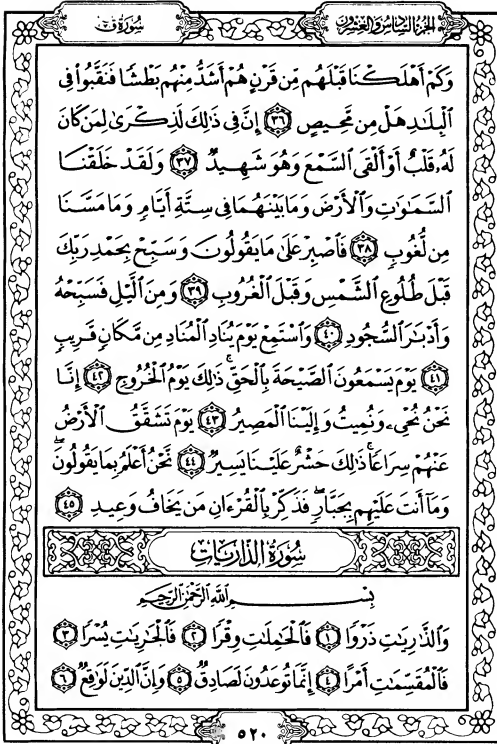 سُورَةُ قٓ الجُزْءُ السَّادِسُ وَالعِشْرُونَ
وَكَمْ أَهْلَكْنَا قَبْلَهُم مِّن قَرْنٍ هُمْ أَشَدُّ مِنْهُم بَطْشًا فَنَقَّبُوا۟ فِى
ٱلْبِلَٰدِ هَلْ مِن مَّحِيصٍ ٣٦ إِنَّ فِى ذَٰلِكَ لَذِكْرَىٰ لِمَن كَانَ
لَهُۥ قَلْبٌ أَوْ أَلْقَى ٱلسَّمْعَ وَهُوَ شَهِيدٌ ٣٧ وَلَقَدْ خَلَقْنَا
ٱلسَّمَٰوَٰتِ وَٱلْأَرْضَ وَمَا بَيْنَهُمَا فِى سِتَّةِ أَيَّامٍ وَمَا مَسَّنَا
مِن لُّغُوبٍ ٣٨ فَٱصْبِرْ عَلَىٰ مَا يَقُولُونَ وَسَبِّحْ بِحَمْدِ رَبِّكَ
قَبْلَ طُلُوعِ ٱلشَّمْسِ وَقَبْلَ ٱلْغُرُوبِ ٣٩ وَمِنَ ٱلَّيْلِ فَسَبِّحْهُ
وَأَدْبَٰرَ ٱلسُّجُودِ ٤٠ وَٱسْتَمِعْ يَوْمَ يُنَادِ ٱلْمُنَادِ مِن مَّكَانٍ قَرِيبٍ
٤١ يَوْمَ يَسْمَعُونَ ٱلصَّيْحَةَ بِٱلْحَقِّ ۚ ذَٰلِكَ يَوْمُ ٱلْخُرُوجِ ٤٢ إِنَّا
نَحْنُ نُحْىِۦ وَنُمِيتُ وَإِلَيْنَا ٱلْمَصِيرُ ٤٣ يَوْمَ تَشَقَّقُ ٱلْأَرْضُ
عَنْهُمْ سِرَاعًا ۚ ذَٰلِكَ حَشْرٌ عَلَيْنَا يَسِيرٌ ٤٤ نَّحْنُ أَعْلَمُ بِمَا يَقُولُونَ ۖ
وَمَآ أَنتَ عَلَيْهِم بِجَبَّارٍ ۖ فَذَكِّرْ بِٱلْقُرْءَانِ مَن يَخَافُ وَعِيدِ ٤٥
سُورَةُ الذَّارِيَاتِ
بِسْمِ ٱللَّهِ ٱلرَّحْمَٰنِ ٱلرَّحِيمِ
وَٱلذَّٰرِيَٰتِ ذَرْوًا ١ فَٱلْحَٰمِلَٰتِ وِقْرًا ٢ فَٱلْجَٰرِيَٰتِ يُسْرًا ٣
فَٱلْمُقَسِّمَٰتِ أَمْرًا ٤ إِنَّمَا تُوعَدُونَ لَصَادِقٌ ٥ وَإِنَّ ٱلدِّينَ لَوَٰقِعٌ ٦
٥٢٠